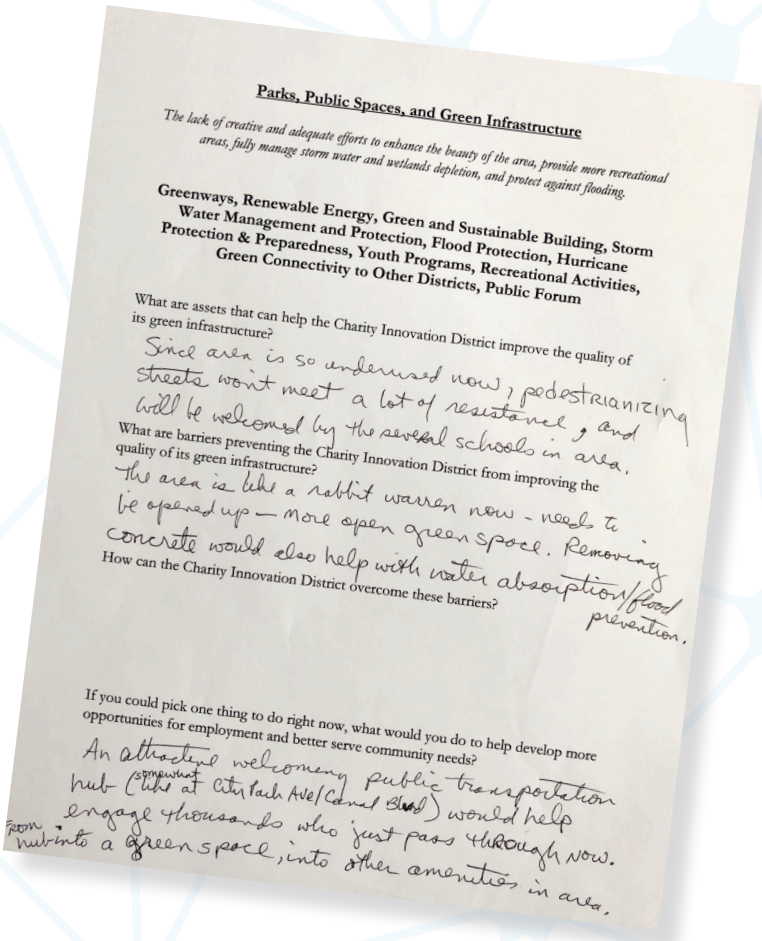 Parks, Public Spaces, and Green Infrastructure
The lack of creative and adequate efforts to enhance the beauty of the area, provide more recreational
areas, fully manage storm water and wetlands depletion, and protect against flooding.
Greenways, Renewable Energy, Green and Sustainable Building, Storm
Water Management and Protection, Flood Protection, Hurricane
Protection & Preparedness, Youth Programs, Recreational Activities,
Green Connectivity to Other Districts, Public Forum
What are assets that can help the Charity Innovation District improve the quality of
its green infrastructure?
Since area is so underused now, pedestrianizing
streets won't meet a lot of resistance, and
will be welcomed by the several schools in area.
What are barriers preventing the Charity Innovation District from improving the
quality of its green infrastructure?
The area is like a rabbit warren now - needs to
be opened up - more open green space. Removing
concrete would also help with water absorption/flood
prevention.
How can the Charity Innovation District overcome these barriers?
If you could pick one thing to do right now, what would you do to help develop more
opportunities for employment and better serve community needs?
An attractive welcoming public transportation
hub (somewhat like at City Park Ave/Canal Blvd) would help
engage thousands who just pass through now.
From hub into a green space, into other amenities in area.